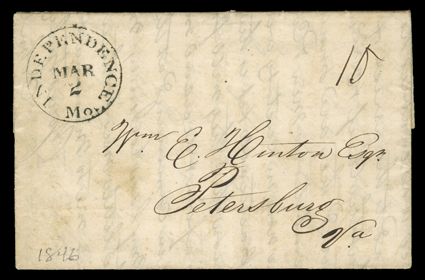 INDEPENDENCE
MAR
2
Mo.
10
Wm E. Hinton Esqr.
Petersburg
Va
1846